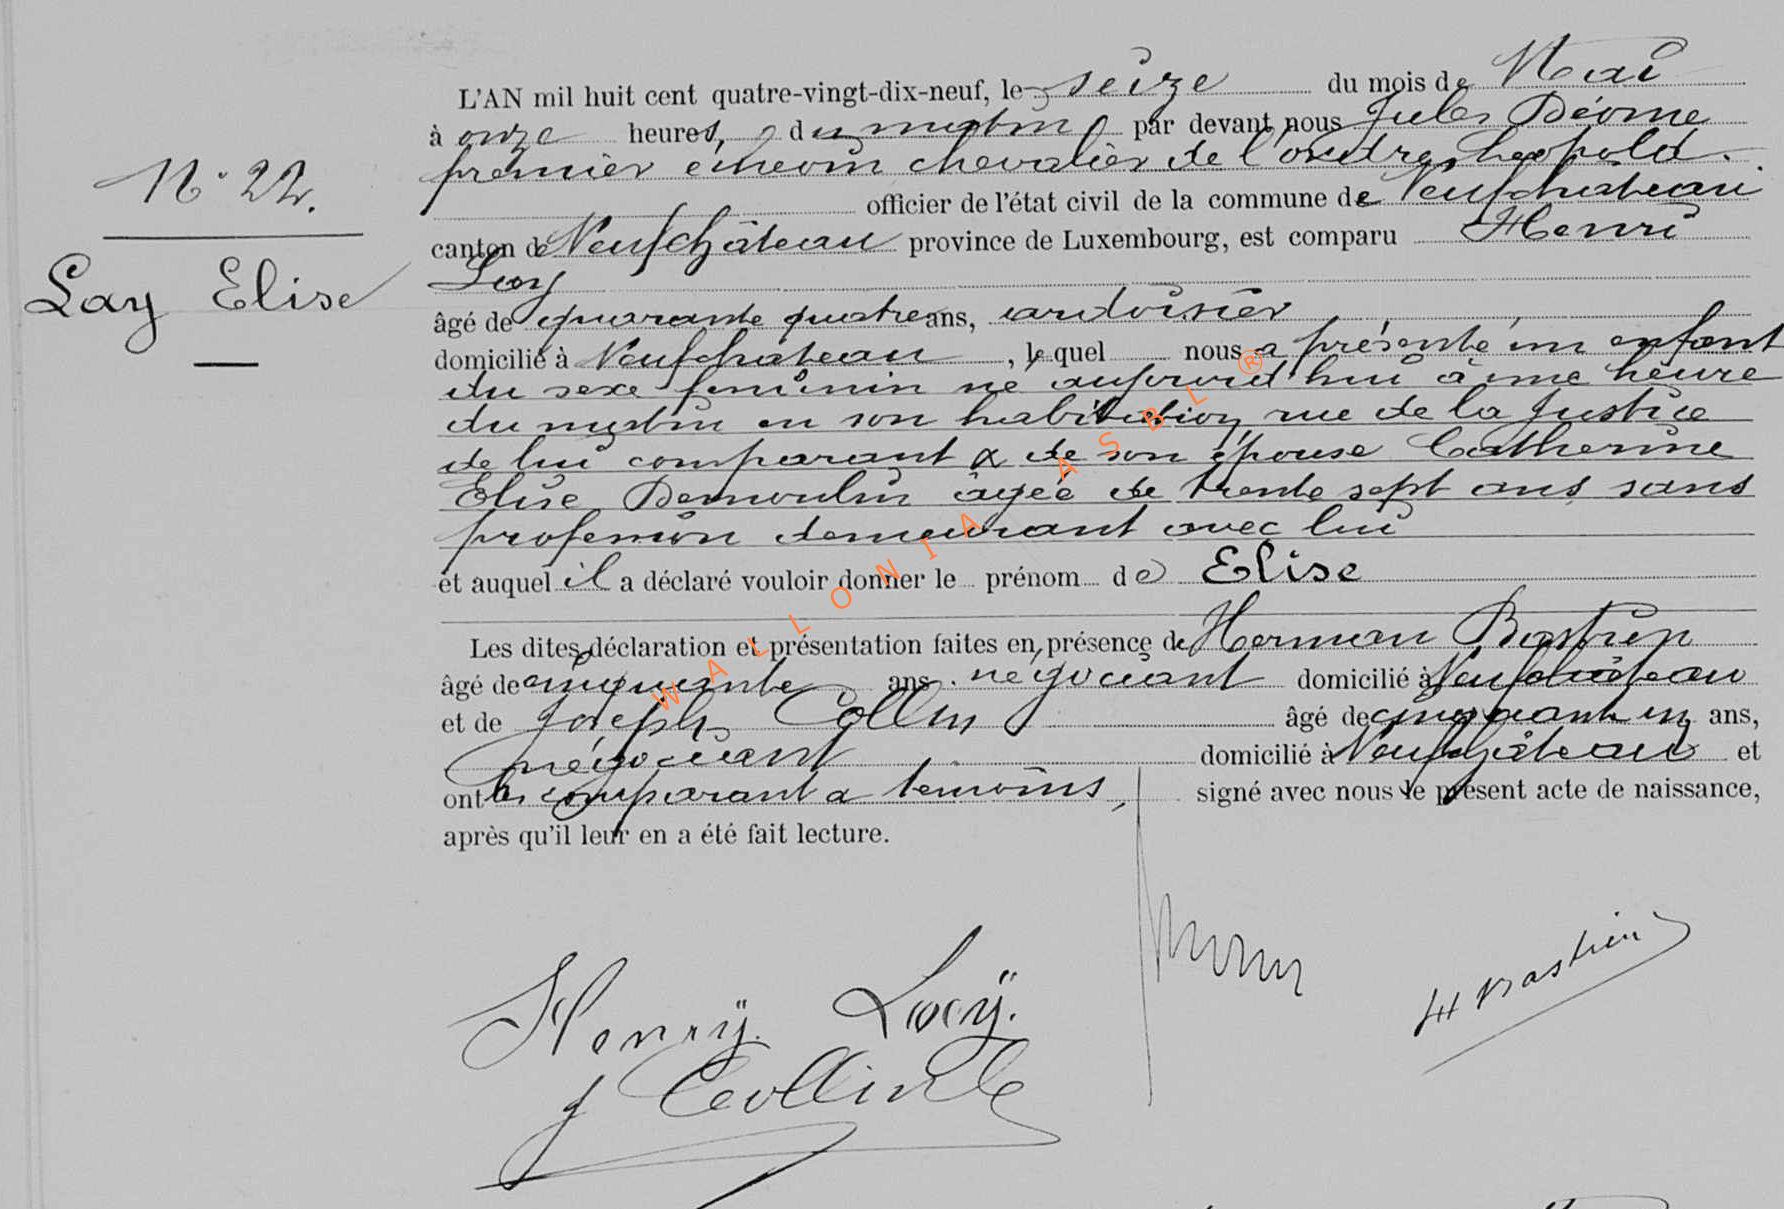 N° 22.
Lay Elise
L'AN mil huit cent quatre-vingt-dix-neuf, le seize du mois de Mai
à onze heures, du matin par devant nous Jules
premier échevin chevalier de l'ordre Léopold.
officier de l'état civil de la commune de Neufchateau
canton de Neufchâteau province de Luxembourg, est comparu Henri
Loy
âgé de quarante quatre ans, ardoisier
domicilié à Neufchateau, lequel nous a présenté un enfant
du sexe feminin né aujourd'hui à une heure
du matin en son habitation rue de la Justice
de lui comparant & de son épouse Catherine
Elise Demoulin âgée de trente sept ans sans
profession demeurant avec lui
et auquel il a déclaré vouloir donner le prénom de Elise
Les dites déclaration et présentation faites en présence de Herman Bastien
âgé de cinquante ans négociant domicilié à Neufchateau
et de Joseph Collin âgé de cinquante un ans,
négociant domicilié à Neufchâteau et
ont les comparant & temoins, signé avec nous le présent acte de naissance,
après qu'il leur en a été fait lecture.
WALLONIA ASBL ®
Henrÿ. Loÿ.
H Bastien
J Collin